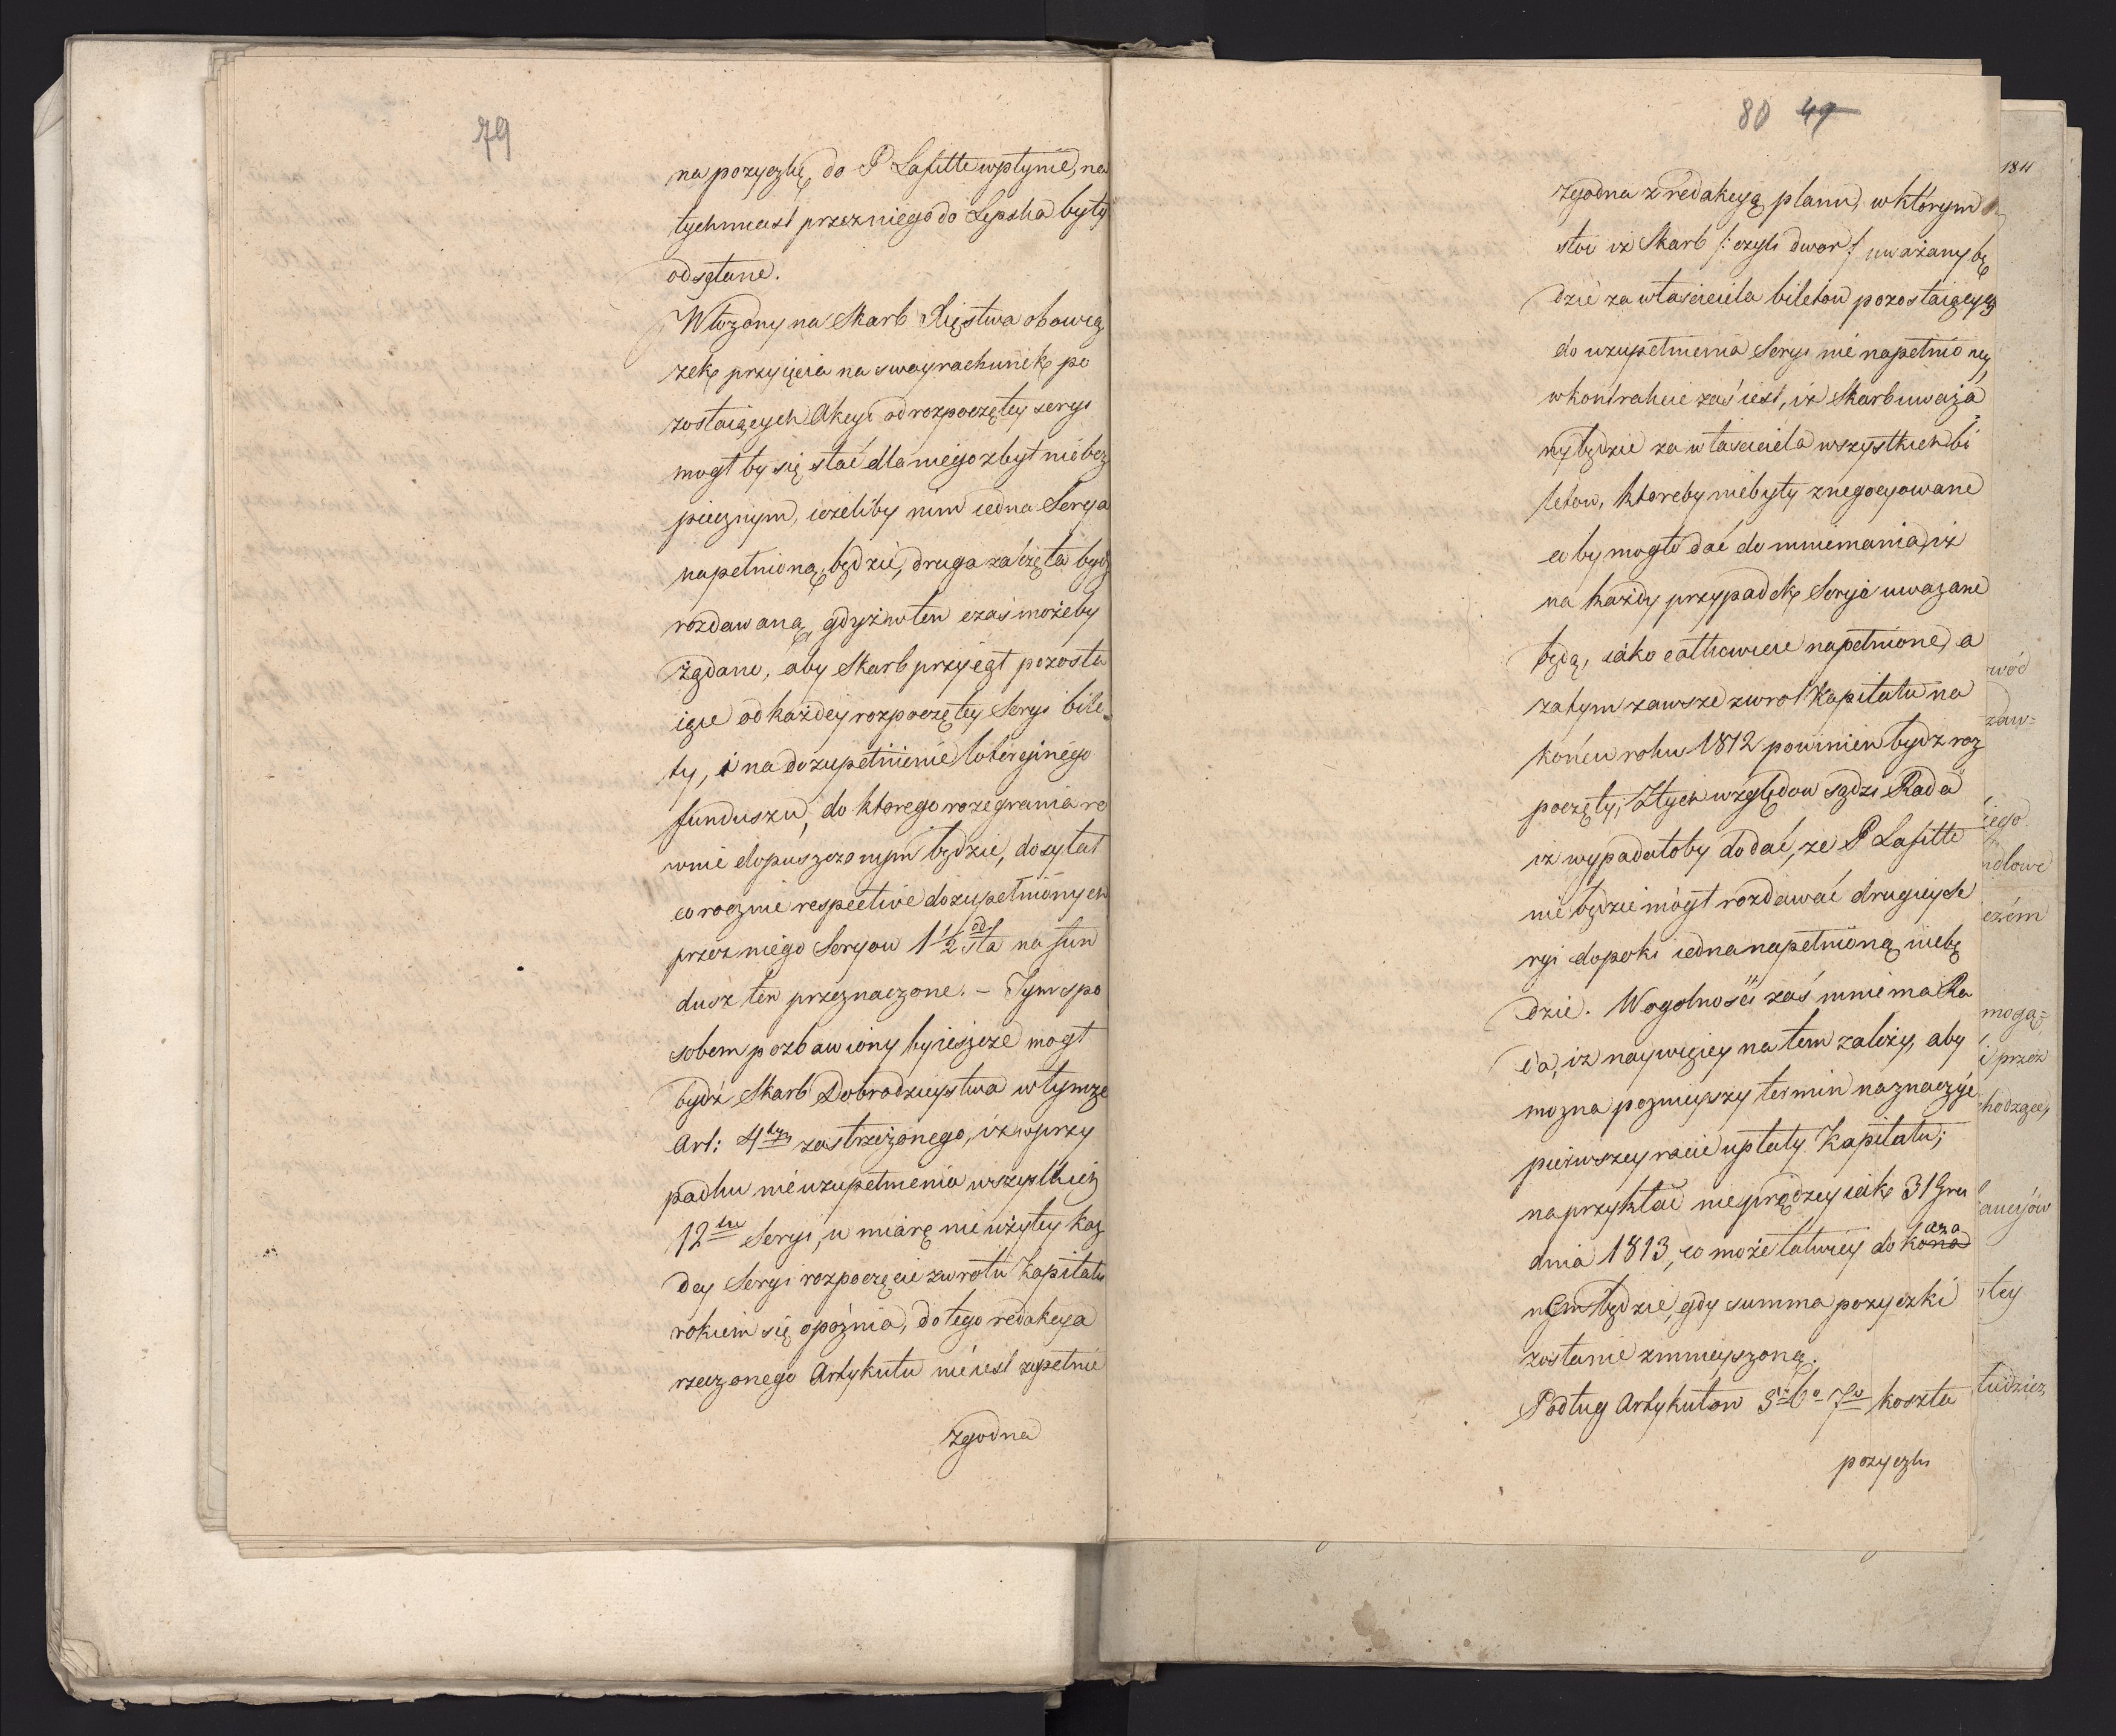 79
na pozyczkę do P Lafitte wpłynie, na
tychmiast przez niego do Lipska były
odsełane.
Włożony na Skarb Xięstwa obowią
zek przyięcia na swoy rachunek po
zostaiących Akcyi od rozpoczętey seryi
mogł by się stać dla niego zbyt niebez
piecznym, ieżeliby nim iedna Serya
napełnioną będzie, druga zaczęta bydz
rozdawaną, gdyż w ten czas możeby
żądano, aby Skarb przyiął pozosta
iące od każdey rozpoczętey Seryi bile-
ty, i na dozupełnienie loteryinego
funduszu, do ktorego rozegrania ro
wnie dopuszczonym będzie, dosyłał
corocznie respective dozupełnionych
przez niego Seryow 1 1/2 od sta na fun
dusz ten przeznaczone. – Tym spo
sobem pozbawiony by ieszcze mogł
bydź Skarb Dobrodzieystwa w tymże
Art: 4tym zastrzeżonego, iż w przy
padku nieuzupełnienia wszystkich
12tu Seryi, w miarę nieużytey każ
dey Seryi rozpoczęcie zwrotu Kapitału
rokiem się opoźnia, do tego redakcya
rzeczonego Artykułu nie iest zupełnie
zgodna
80 49
zgodna z redakcyą planu, w którym
stoi iż Skarb /: czyli dwor :/ uważany bę
dzie za właściciela biletow pozostaiących
do uzupełnienia Seryi nie napełnioney,
w kontrakcie zaś iest, iż Skarb uważa
ny będzie za właściciela wszystkich bi
letow, ktoreby niebyły znegocyowane
co by mogło dać do mniemania, iż
na każdy przypadek Serye uwazane
będą, iako całkowicie napełnione, a
zatym zawsze zwrot Kapitału na
końcu roku 1812 powinien bydz roz
poczęty; Z tych względow sądzi Rada
iż wypadałoby dodać, ze P Lafitte
nie będzie mógł rozdawać drugiey Se
ryi dopoki iedna napełnioną niebę
dzie. W ogolności zaś mniema Ra
da, iż naywięcey na tem zależy, aby
mozna pozniejszy termin naznaczyć
pierwszey racie upłaty Kapitału;
naprzykład nieprędzey iak 31 Gru
dnia 1813, co może łatwiey do kona
cza
nem będzie, gdy summa pozyczki
zostanie zmnieyszoną.
Podług Artykułow 5o 6o 7o koszta
pozyczki
1811
wód
zaw=
iego
ndlowe
czém
mogą=
i przez
hodzące,
ancyów
tey
tudzież